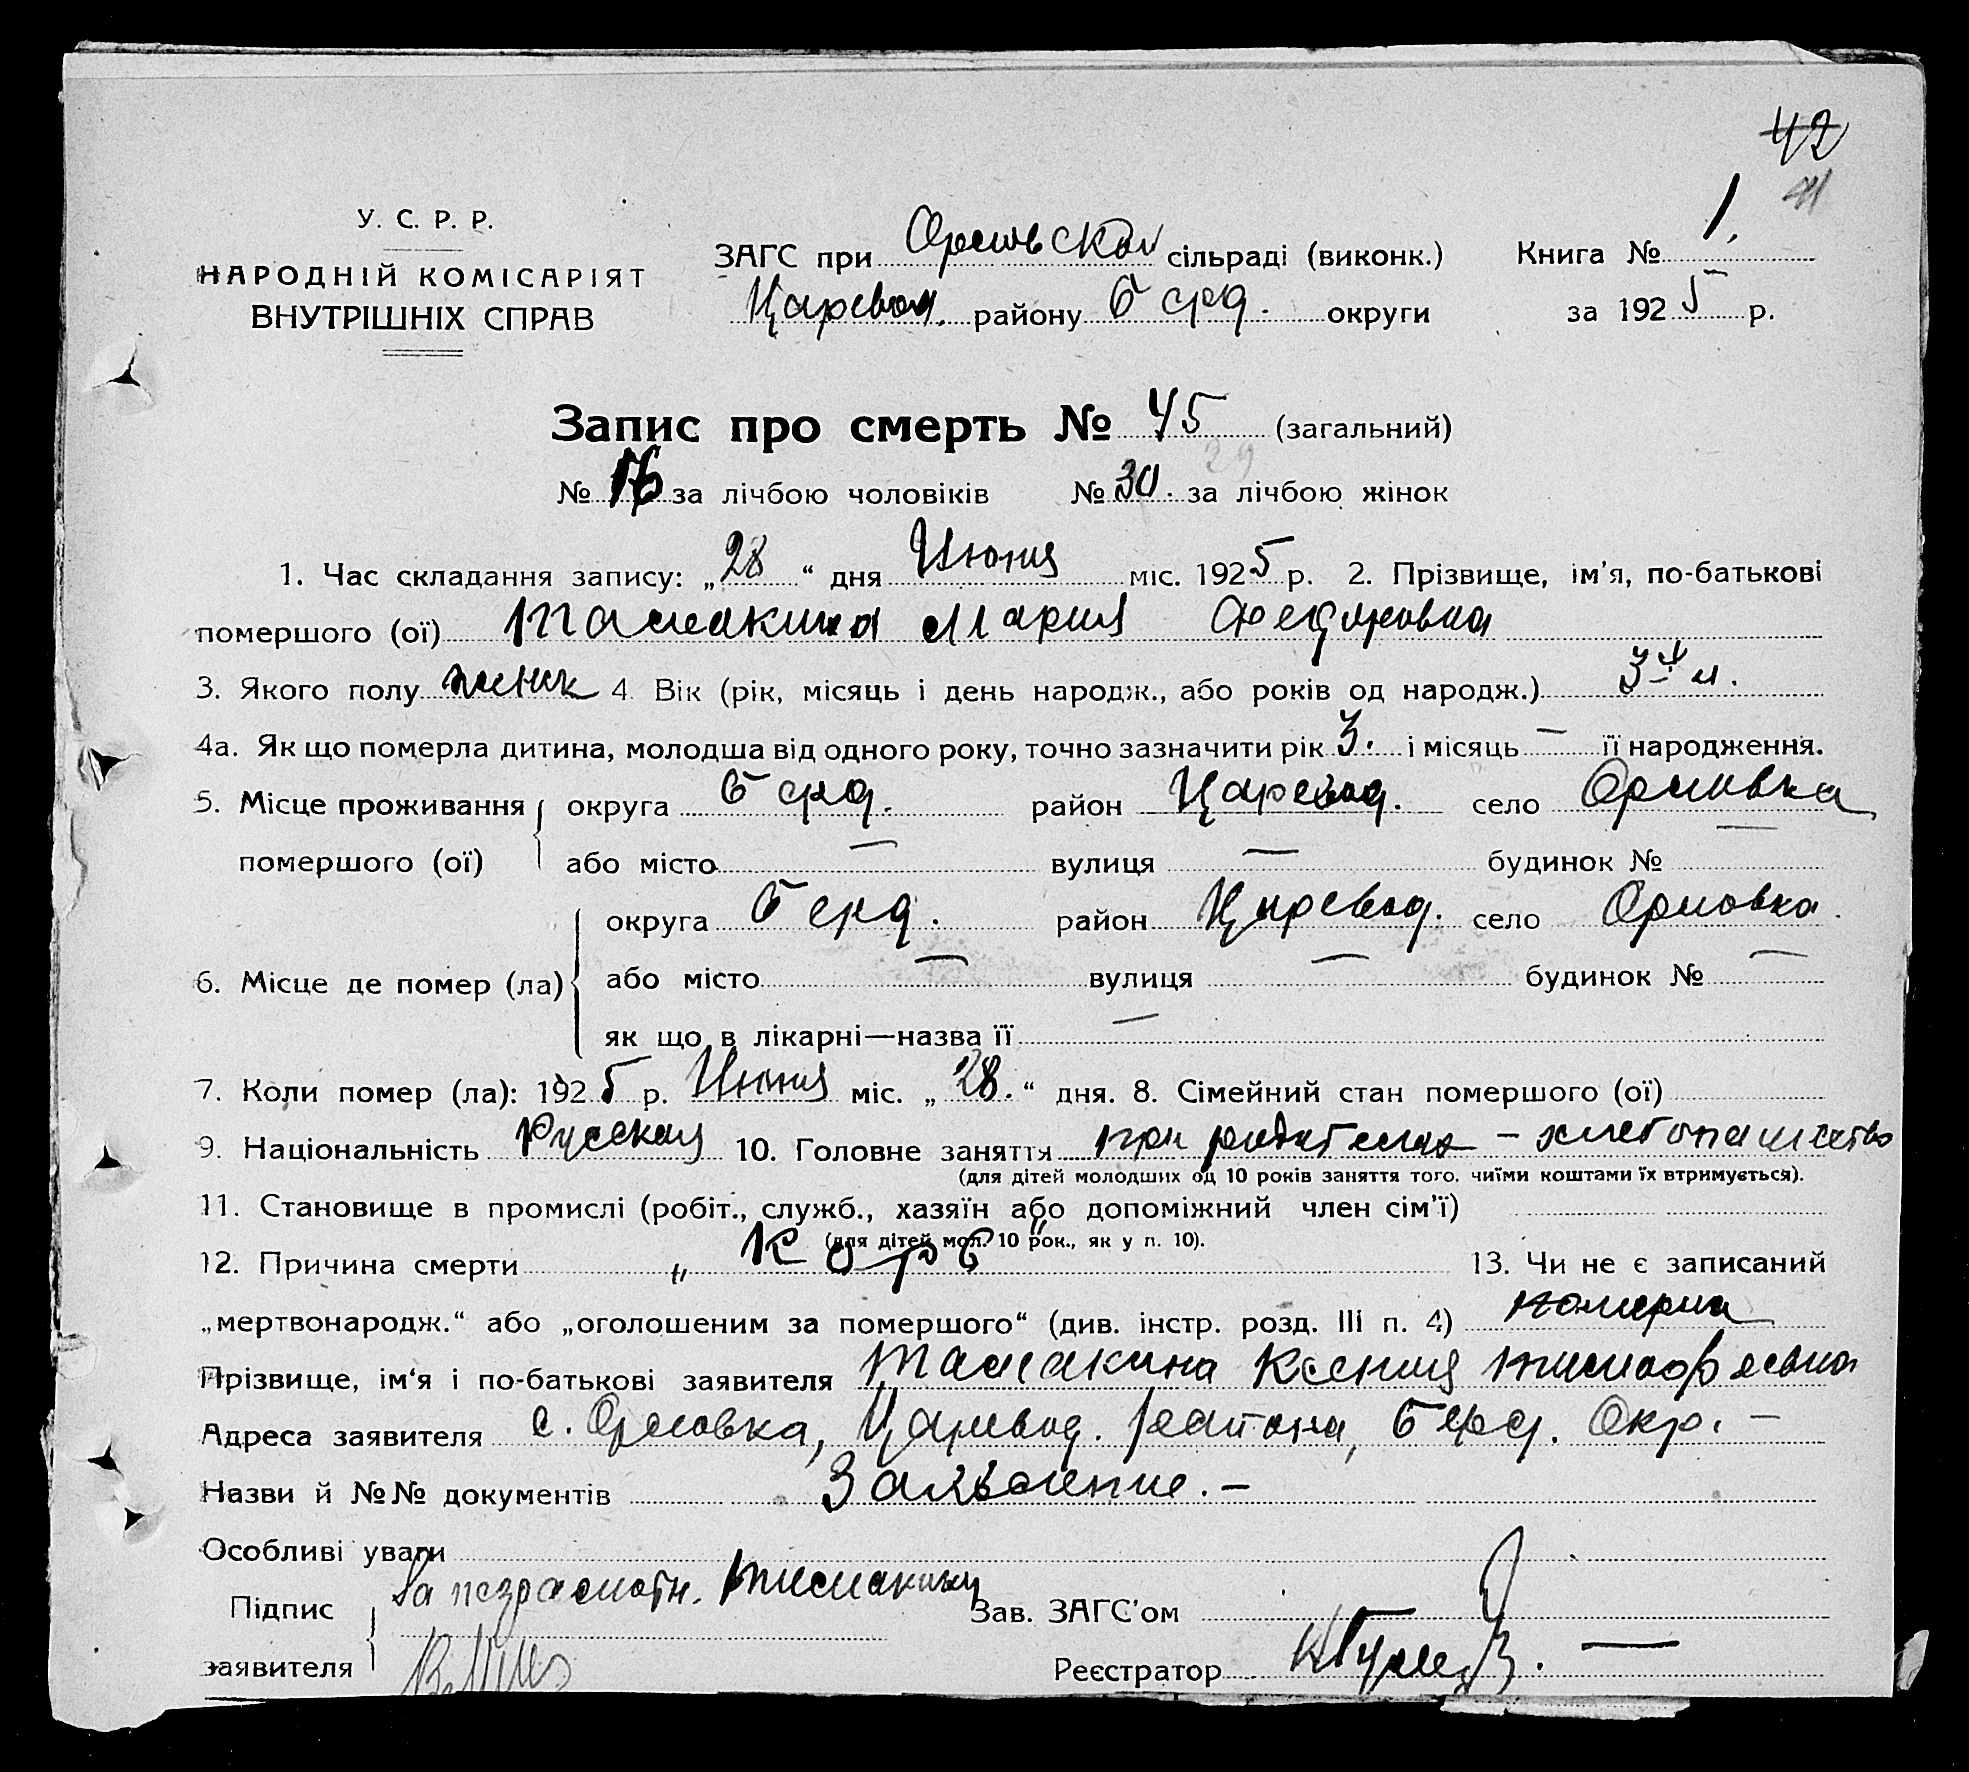 42
41
У. С. Р. Р.
НАРОДНІЙ КОМІСАРІЯТ
ВНУТРІШНІХ СПРАВ
ЗАГС при Орловской сільраді (виконк.) Книга № 1.
Царевод. району Берд. округи за 1925 р.
Запис про смерть № 45 (загальний)
29
№ 16 за лічбою чоловіків № 30. за лічбою жінок
1. Час складання запису: „28“ дня Июня міс. 1925 р. 2. Прізвище, ім'я, по-батькові
помершого (ої) Мария Федоровна
3. Якого полу женск 4. Вік (рік, місяць і день народж., або років од народж.) 3
4а. Як що померла дитина, молодша від одного року, точно зазначити рік 3. і місяць — її народження.
5. Місце проживання округа Берд. район Царевод. село Орловка
помершого (ої) або місто — вулиця — будинок № —
округа Берд. район Царевод. село Орловка.
6. Місце де помер (ла) або місто — вулиця — будинок № —
як що в лікарні—назва її —
7. Коли помер (ла): 1925 р. Июня міс. „28.“ дня. 8. Сімейний стан помершого (ої)
9. Національність Русская 10. Головне заняття при родителях – хлебопашество
(для дітей молодших од 10 років заняття того, чиїми коштами їх втримується).
11. Становище в промислі (робіт., служб., хазяїн або допоміжний член сім'ї)
(для дітей мол. 10 рок., як у п. 10).
12. Причина смерти „Корь“ 13. Чи не є записаний
„мертвонародж.“ або „оголошеним за помершого“ (див. інстр. розд. III п. 4) померла
Прізвище, ім'я і по-батькові заявителя Ксения Тимофеевна
Адреса заявителя с. Орловка, Царевод. района, Берд. Окр. –
Назви й №№ документів Заявление. –
Особливі уваги
Підпис За неграмотн. Зав. ЗАГС'ом
заявителя Реєстратор